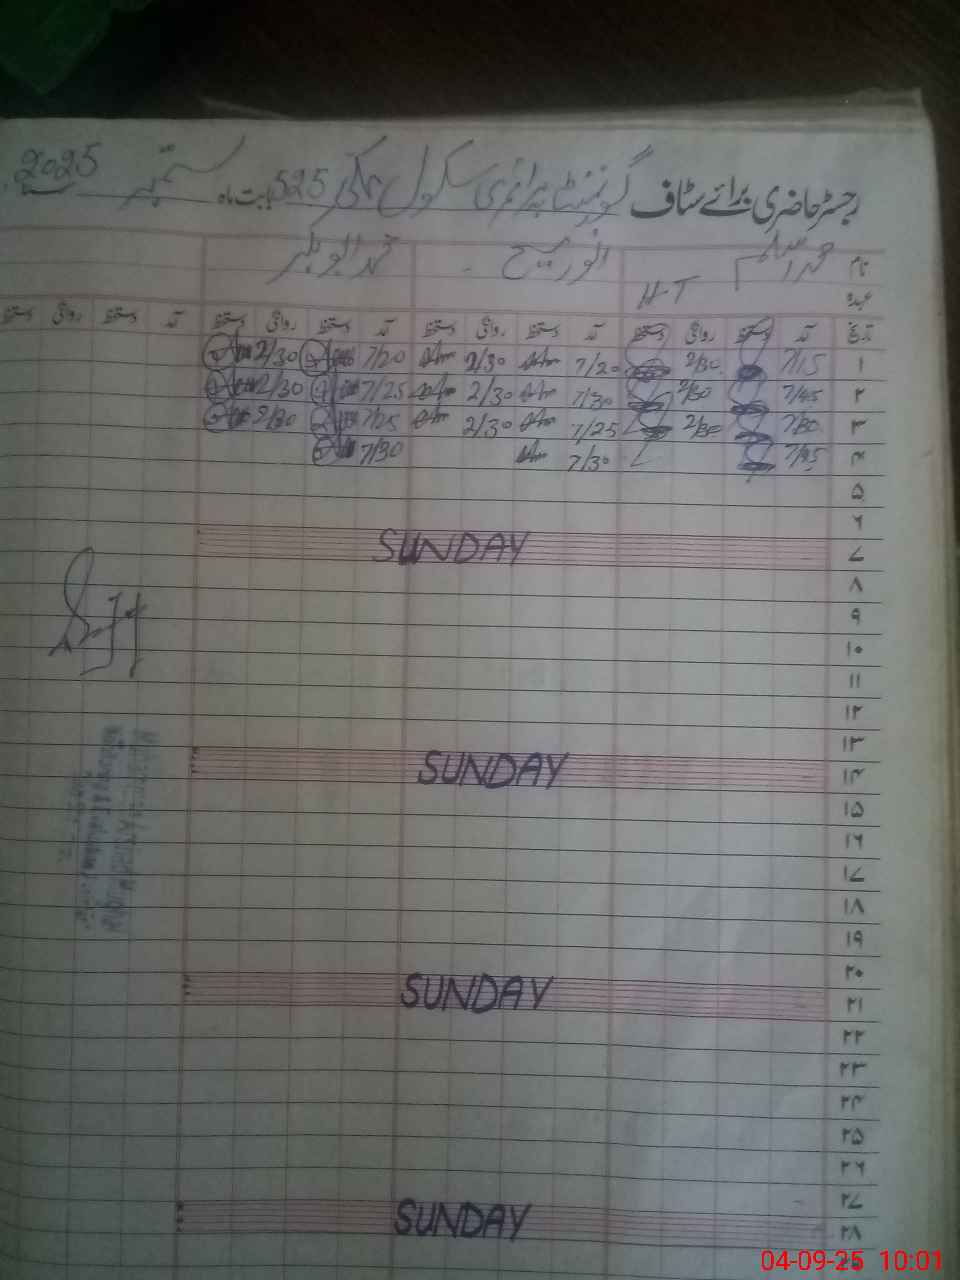 رجسٹر حاضری برائے سٹاف گورنمنٹ پرائمری سکول چک 525 بابت ماہ ستمبر 2025
نام محمد اسلم انور مسیح محمد ابوبکر
عہدہ H-T
تاریخ آمد دستخط روانگی دستخط آمد دستخط روانگی دستخط آمد دستخط روانگی دستخط آمد دستخط روانگی دستخط
۱ 7/15 2/30 7/20 2/30 7/20 2/30
۲ 7/45 2/30 7/30 2/30 7/25 2/30
۳ 7/30 2/30 7/25 2/30 7/25 2/30
۴ 7/30 7/30
۵
۶
۷ SUNDAY
۸
۹
۱۰
۱۱
۱۲
۱۳
۱۴ SUNDAY
۱۵
۱۶
۱۷
۱۸
۱۹
۲۰
۲۱ SUNDAY
۲۲
۲۳
۲۴
۲۵
۲۶
۲۷
۲۸ SUNDAY
04-09-25 10:01